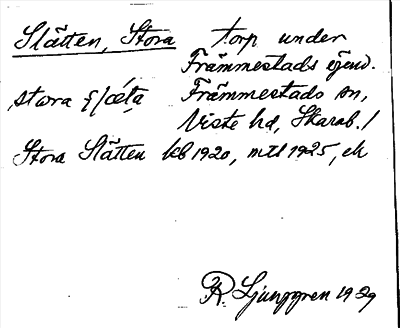 Slätten, Stora torp under
Främmestads egend.
Främmestads sn,
Viste hd, Skarab. l
Stora Slätten kb 1920, mtl 1925, ek
R. Ljunggren 1929